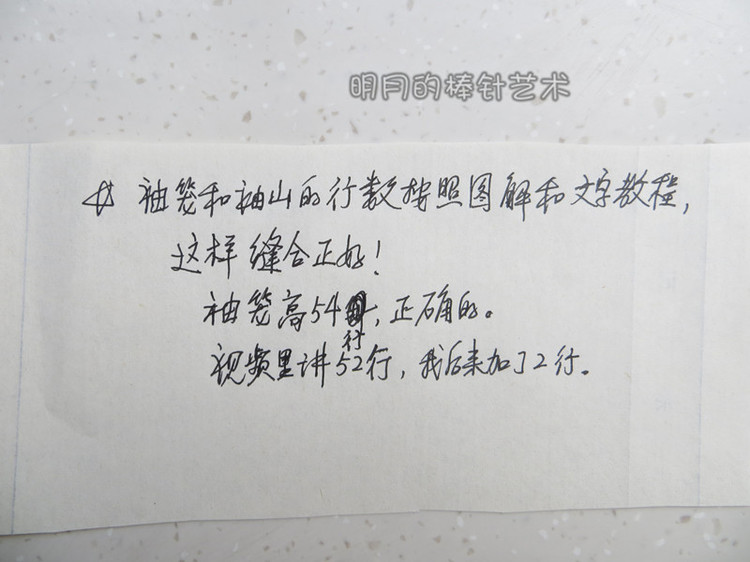 明月的棒针艺术
☆ 袖笼和袖山的行数按照图解和文字教程，
这样缝合正好！
袖笼高54行，正确的。
视频里讲52行，我后来加了2行。